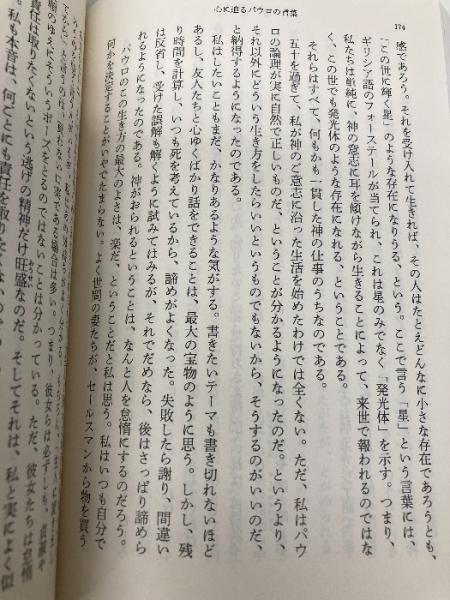 174
心に迫るパウロの言葉
感であろう。それを受け入れて生きれば、その人はたとえどんなに小さな存在であろうとも、
「この世に輝く星」のような存在になりうる、という。ここで言う「星」という言葉には、
ギリシア語のフォーステールが当てられ、これは星のみでなく「発光体」を示す。つまり、
私たちは単純に、神の意志に耳を傾けながら生きることによって、来世で報われるのではな
く、この世でも発光体のような存在になれる、ということである。
それらはすべて、何もかも一貫した神の仕事のうちなのである。
五十を過ぎて、私が神のご意志に沿った生活を始めたわけでは全くない。ただ、私はパウ
ロの論理が実に自然で正しいものだ、ということが分かるようになったのだ。というより、
それ以外にどういう生き方をしたらいいというものでもないから、そうするのがいいのだ、
と納得するようになったのである。
私はしたいこともまだ、かなりあるような気がする。書きたいテーマも書き切れないほど
あるし、友人たちと心ゆくばかり話をできることは、最大の宝物のように思う。しかし、残
り時間を計算し、いつも死を考えているから、諦めがよくなった。失敗したら謝り、間違い
は反省し、受けた誤解も解くように試みてはみるが、それでだめなら、後はさっぱり諦めら
れるようになったのである。神がおられるということは、なんと人を怠惰にするのだろう。
パウロのこの生き方の最大のよさは、楽だ、ということだと私は思う。私はいつも自分で
何かを決定することがいやでたまらない。よく世間の妻たちが、セールスマンから物を買う
責任は取りたくないという逃げの精神だけ旺盛なのだ。そしてそれは、私と実によく似